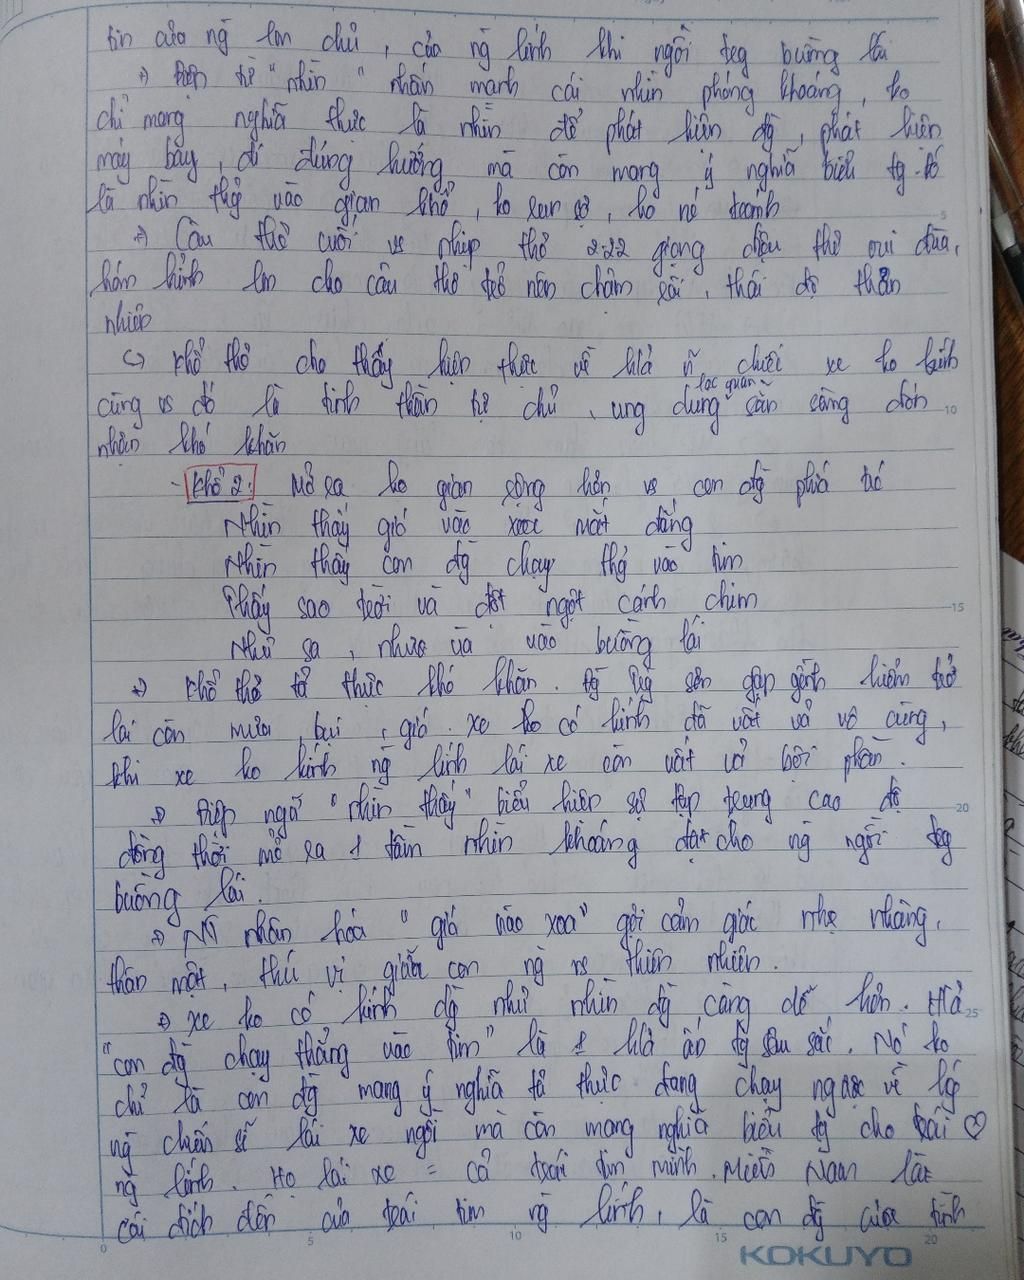 tin của ng̃ lm chủ, của ng̃ lính khi ngồi trg buồng lái
→ Điệp từ "nhìn" nhấn mạnh cái nhìn phóng khoáng, ko
chỉ mang nghĩa thực là nhìn để phát hiện đg̀, phát hiện
máy bay, đi đúng hướng mà còn mang ý nghĩa biểu tg. Đó
là nhìn thg̉ vào gian khổ, ko run sợ, ko né tránh
→ Câu thơ cuối vs nhịp thơ 2.2.2 giọng điệu thơ vui đùa,
hóm hỉnh lm cho câu thơ trở nên chậm rãi, thái độ thản
nhiên
↪ Khổ thơ cho thấy hiện thực về h/ả ~ chiếc xe ko kính
lạc quan
cùng vs đó là tinh thần tự chủ, ung dung sẵn sàng đón
nhận khó khăn
- Khổ 2: Mở ra ko gian rộng hơn vs con đg̀ phía trc
Nhìn thấy gió vào xoa mắt đắng
Nhìn thấy con đg̀ chạy thg̉ vào tim
Thấy sao trời và đột ngột cánh chim
Như sa, như ùa vào buồng lái
→ Khổ thơ tả thực khó khăn. Đg̀ Trg Sơn gập gềnh hiểm trở
lại còn mưa, bụi, gió. Xe ko có kính đã vất vả vô cùng,
khi xe ko kính ng̃ lính lái xe còn vất vả bội phần.
→ Điệp ngữ "nhìn thấy" biểu hiện sự tập trung cao độ
đồng thời mở ra 1 tầm nhìn khoáng đạt cho ng̃ ngồi trg
buồng lái.
→ NT nhân hóa "gió vào xoa" gợi cảm giác nhẹ nhàng,
thân mật, thú vị giữa con ng̃ vs thiên nhiên.
→ Xe ko có kính đg̀ như nhìn đg̀ càng dễ hơn. H/ả
"con đg̀ chạy thẳng vào tim" là 1 h/ả ấn tg sâu sắc. Nó ko
chỉ là con đg̀ mang ý nghĩa tả thực đang chạy ngược về lớp
ng̃ chiến sĩ lái xe ngồi mà còn mang nghĩa biểu tg cho trái ♡
ng̃ lính. Họ lái xe = cả trái tim mình. Miền Nam là
cái đích đến của trái tim ng̃ lính, là con đg̀ của tình
KOKUYO